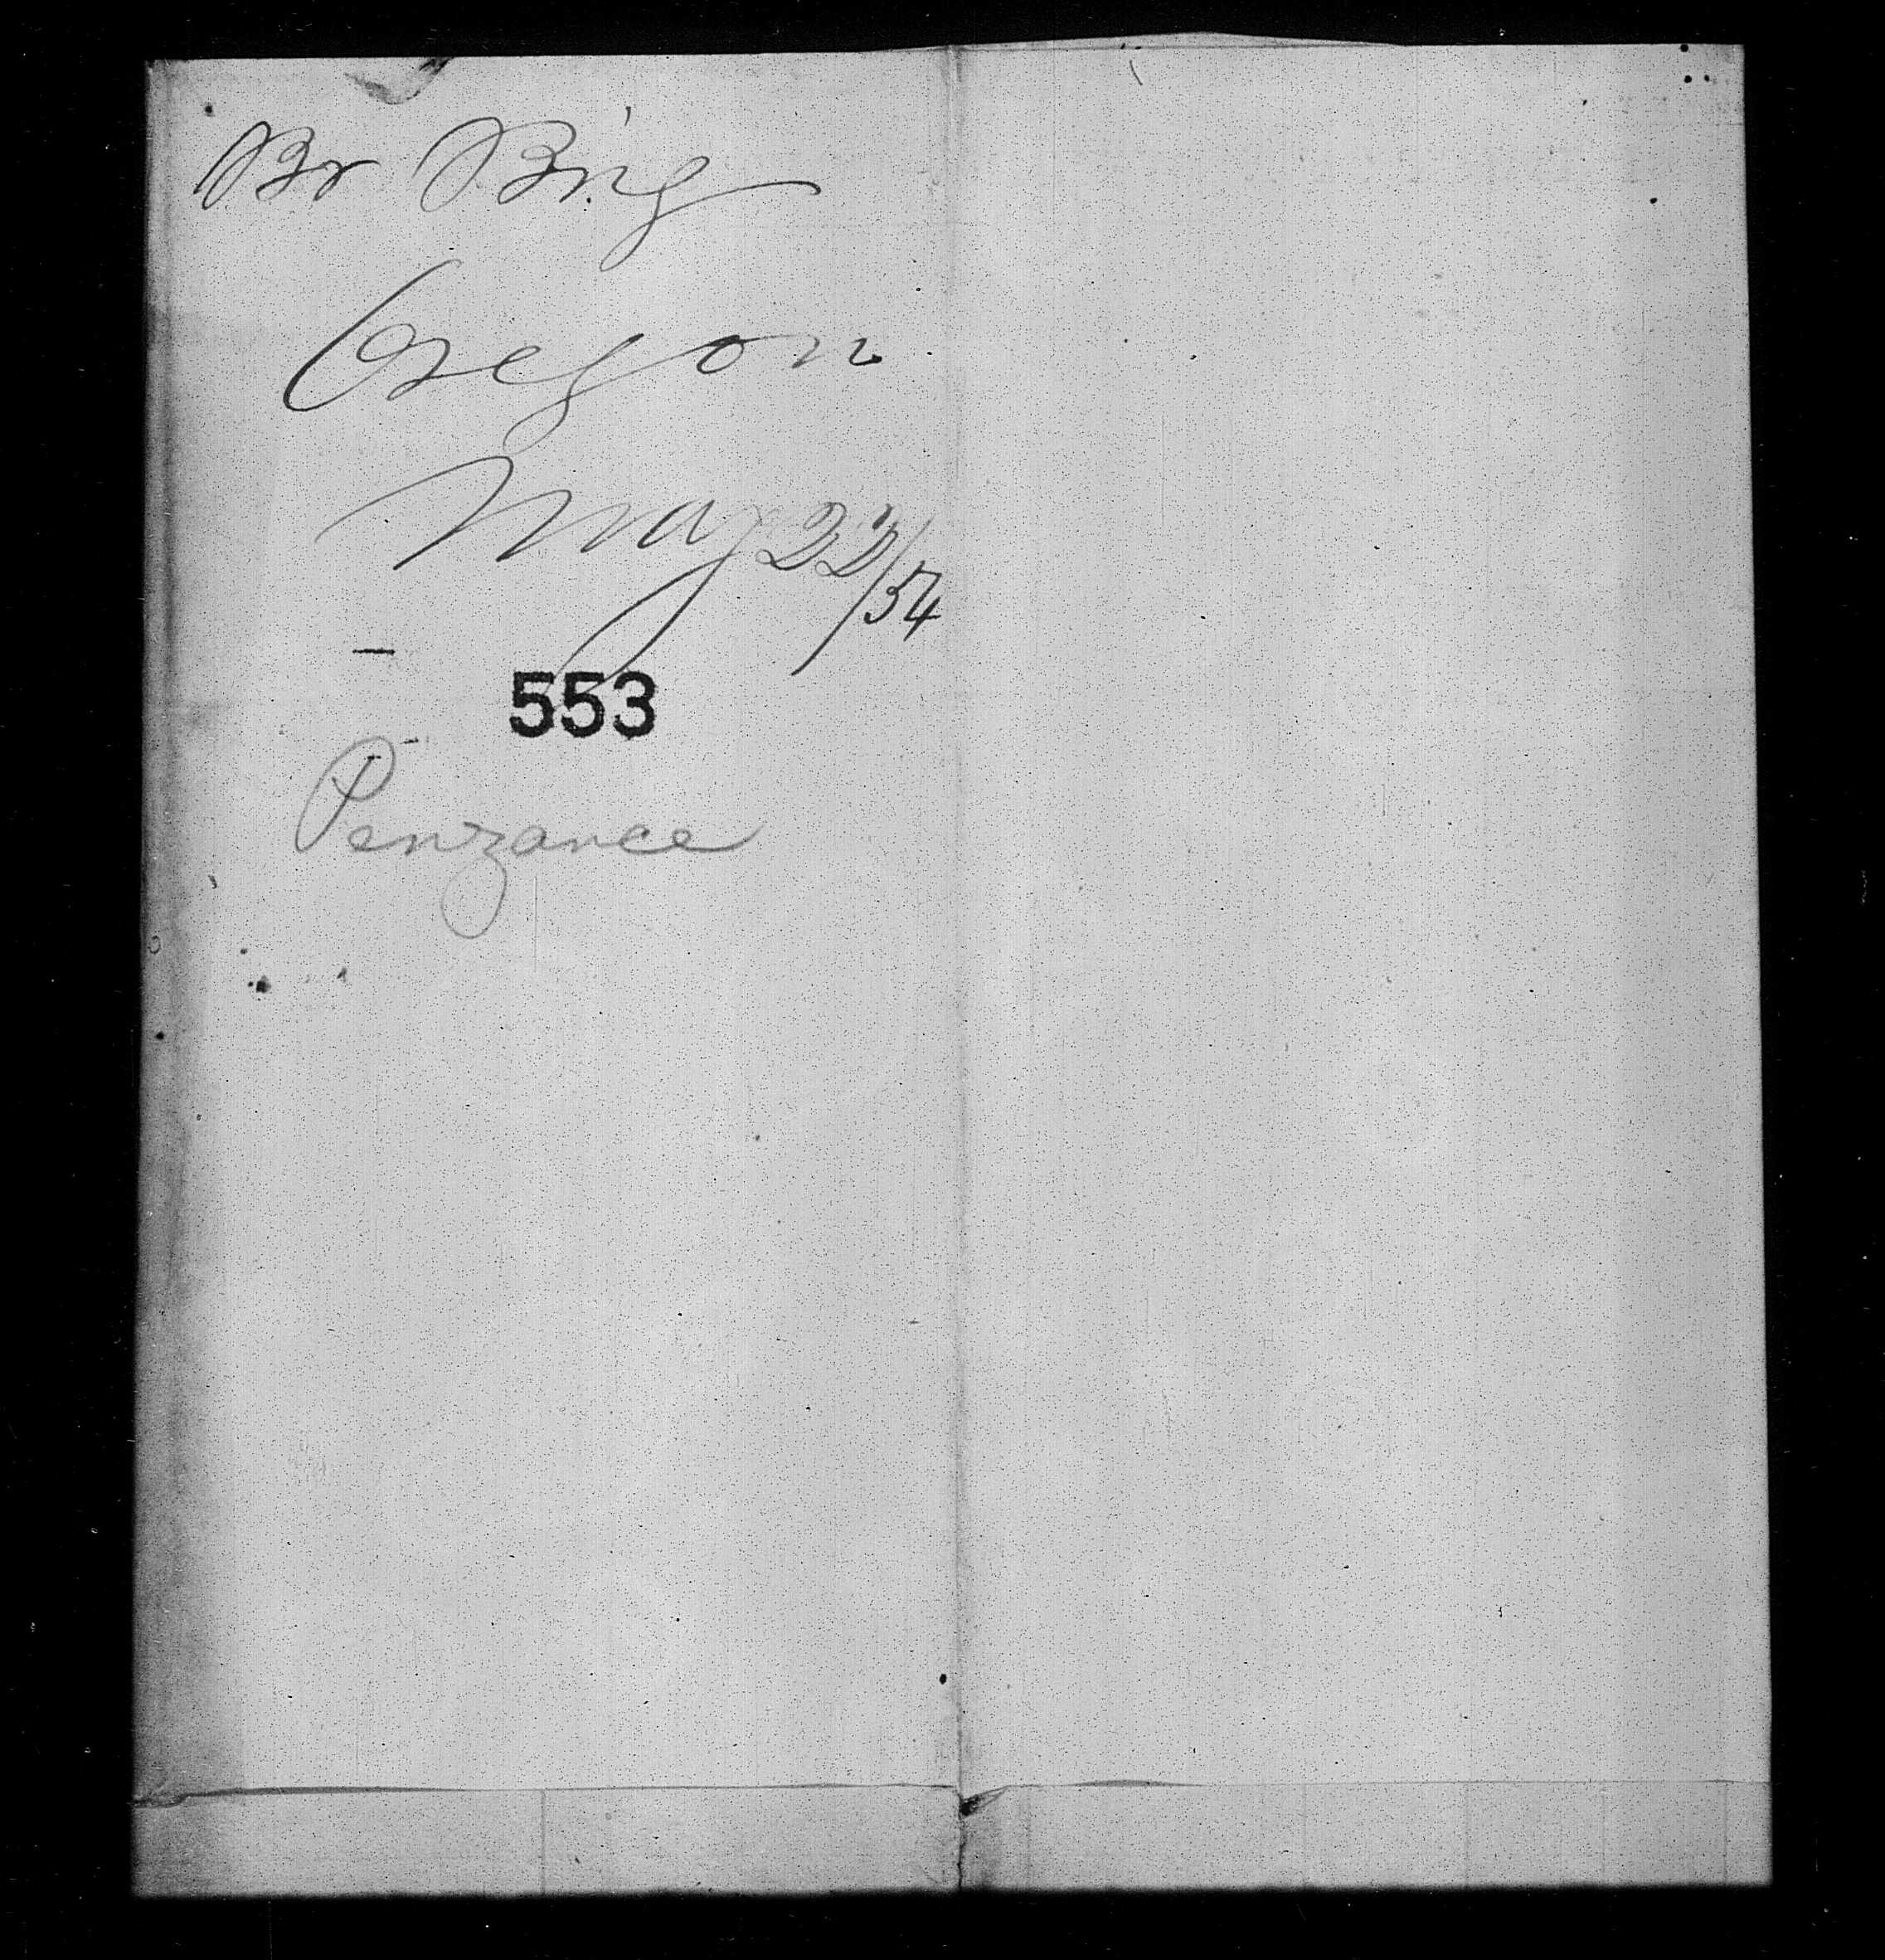 Br Brig
Oregon
May 22/54
553
Penzance